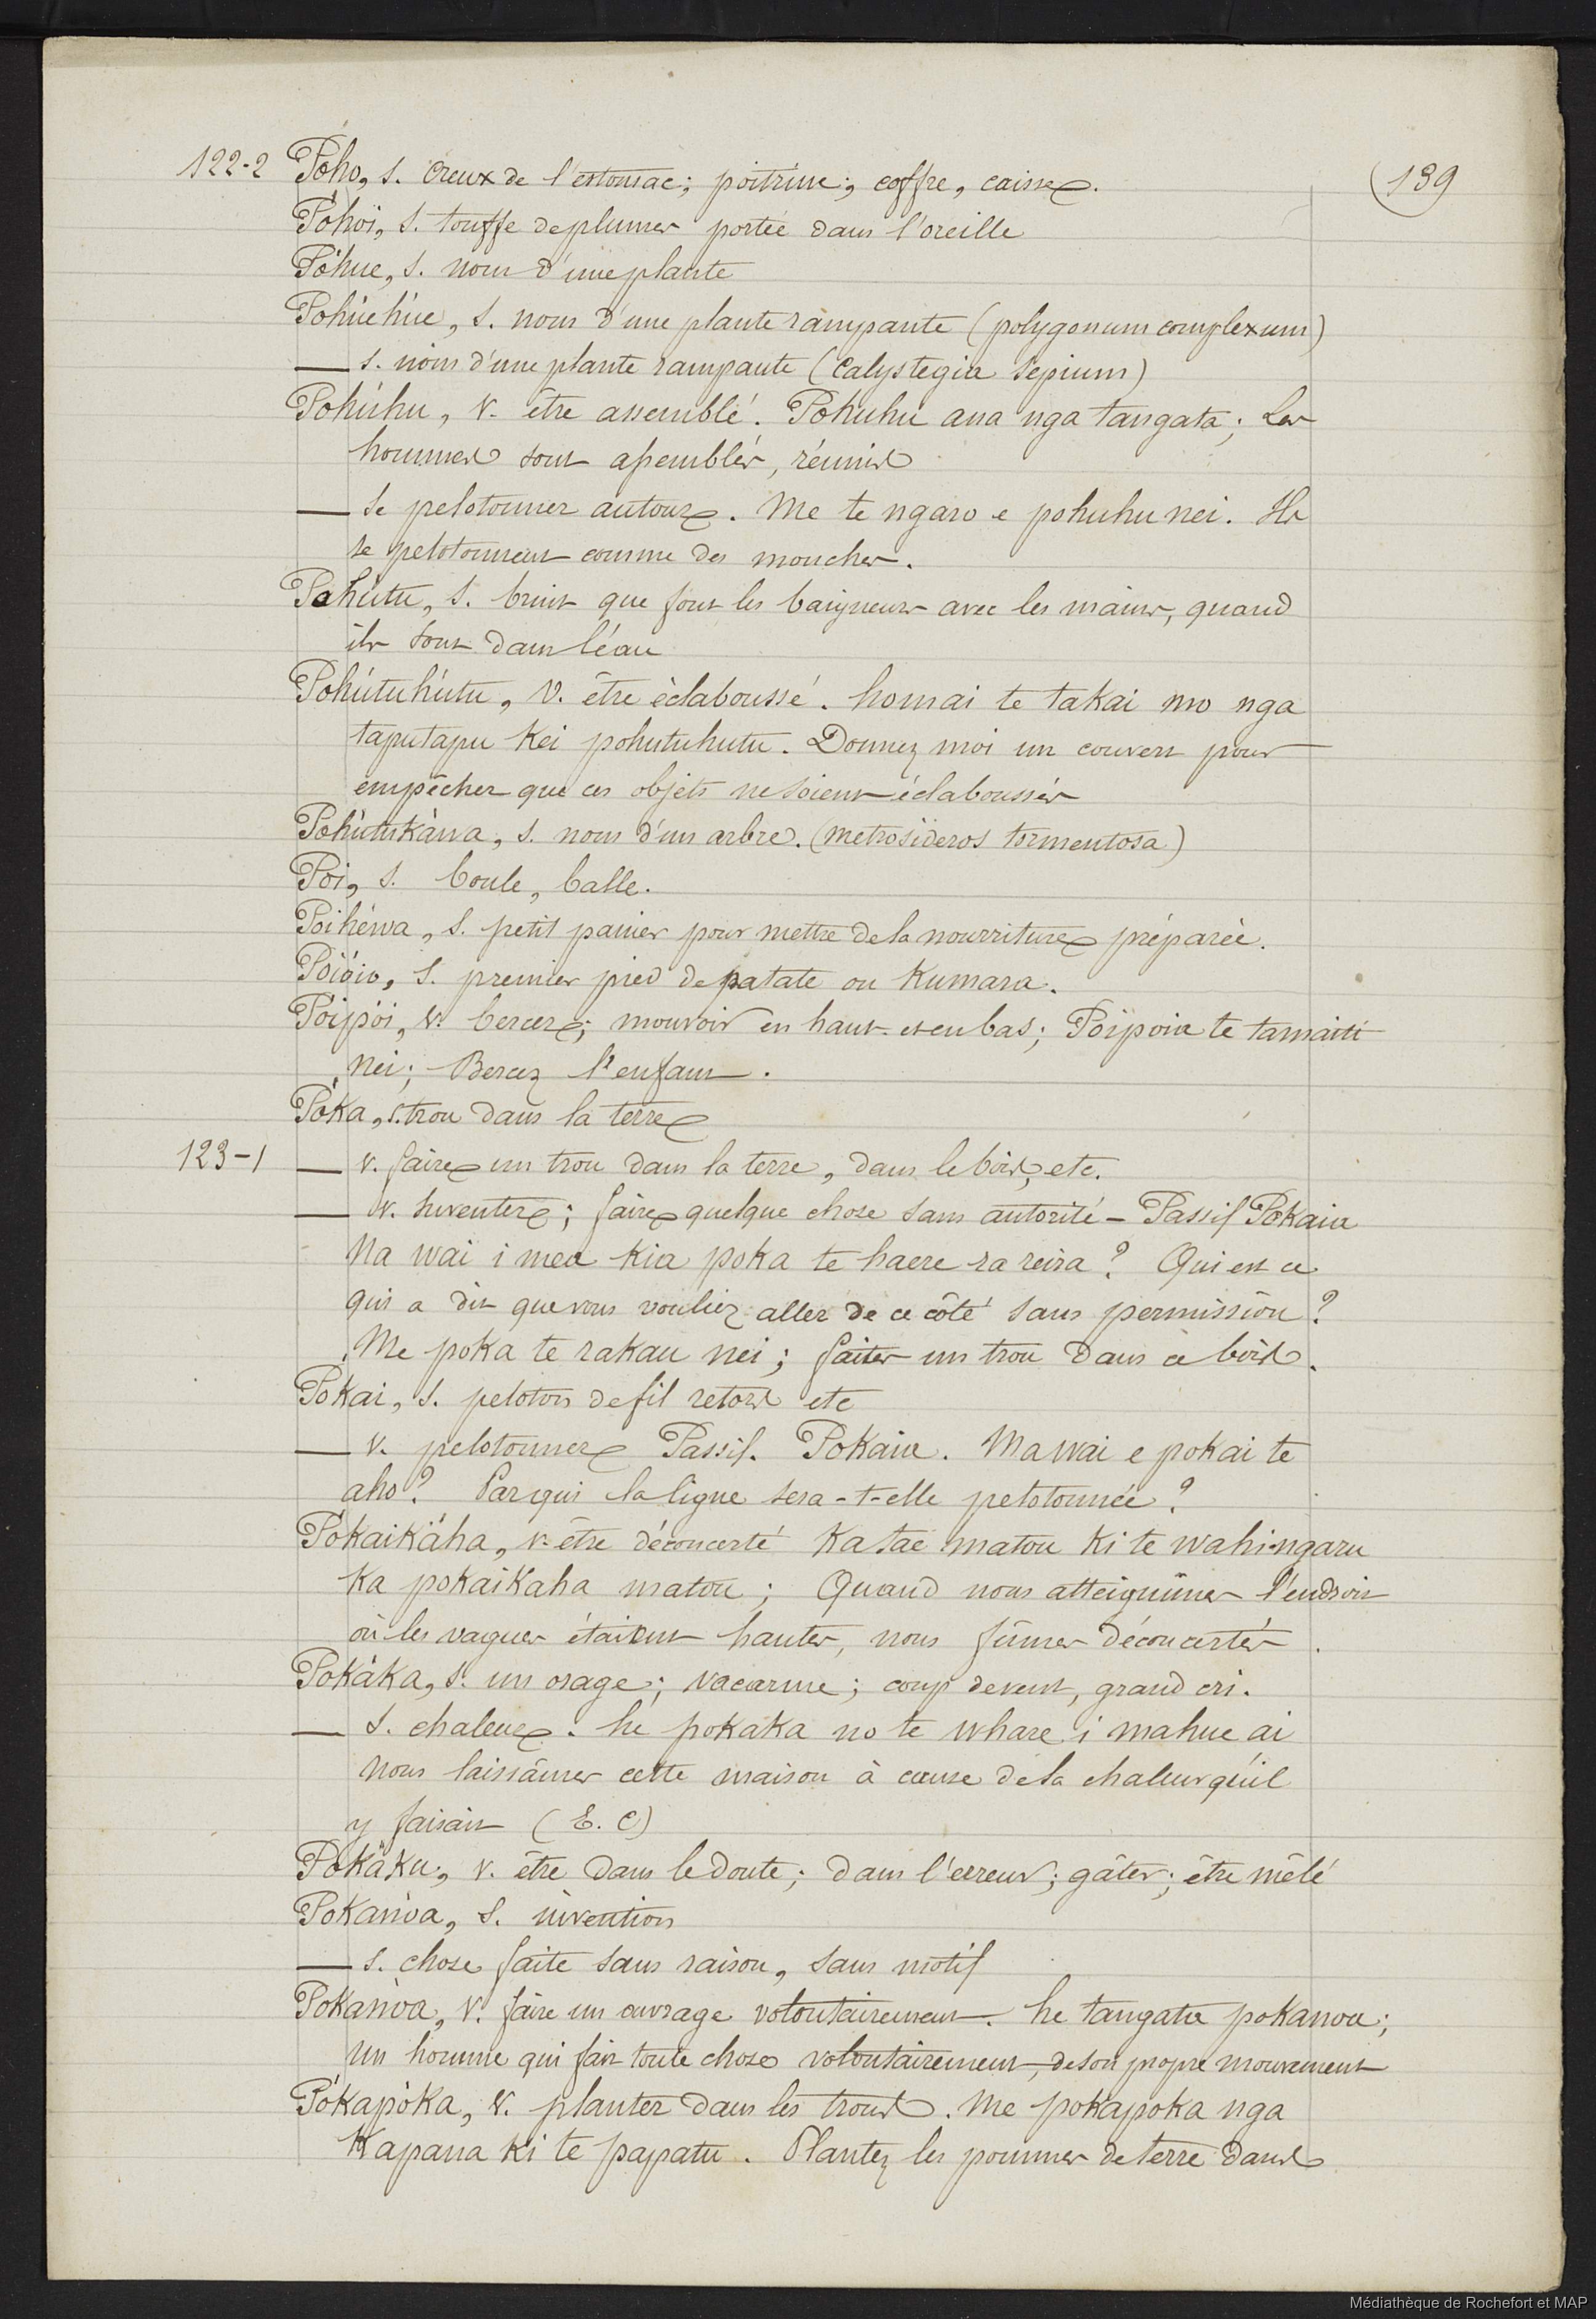 (139
122-2 Póho, s. creux de l'estomac; poitrine; coffre, caisse.
Póhoi, s. touffe de plumes portée dans l'oreille
Póhue, s. nom d'une plante
Pohúehúe, s. nom d'une plante rampante (polygonum complexum)
— s. nom d'une plante rampante (Calystegia Sepium)
Pohúhu, v. être assemblé. Pohuhu ana nga tangata; Les
hommes sont assemblés, réunis
— se pelotonner autour. Me te ngaro e pohuhu nei. Ils
se pelotonnent comme des mouches.
Pohútu, s. bruit que font les baigneurs avec les mains, quand
ils sont dans l'eau
Pohútuhútu, v. être éclaboussé. homai te takai mo nga
taputapu kei pohutuhutu. Donnez moi un couvert pour
empêcher que ces objets ne soient éclaboussés
Pohútukáwa, s. nom d'un arbre. (metrosideros tormentosa)
Poi, s. boule, balle.
Poihéwa, s. petit panier pour mettre de la nourriture préparée.
Poióio, s. premier pied de patate ou Kumara.
Póipói, v. bercer; mouvoir en haut et en bas; Poipoia te tamaiti
nei; Bercez l'enfant.
Póka, s. trou dans la terre
123-1 — v. faire un trou dans la terre, dans le bois, etc.
— v. Inventer; faire quelque chose sans autorité - Passif Pokaia
Na wai i mea kia poka te haere ra reira? Qui est ce
qui a dit que vous vouliez aller de ce côté sans permission?
Me poka te rakau nei; faites un trou dans ce bois.
Pokai, s. peloton de fil retors etc
— v. pelotonner Passif. Pokaia. Ma wai e pokai te
aho? Par qui la ligne sera-t-elle pelotonnée?
Pókaikáha, v. être déconcerté Ka tae matou ki te wahi ngaru
ka pokaikaha matou; Quand nous atteignîmes l'endroit
où les vagues étaient hautes, nous fûmes déconcertés.
Pokáka, s. un orage; vacarme; coup de vent, grand cri.
— s. chaleur. he pokaka no te whare i mahue ai
nous laissâmes cette maison à cause de la chaleur qu'il
y faisait (E. C)
Pokáku, v. être dans le doute; dans l'erreur; gâter; être mêlé
Pokanóa, s. invention
— s. chose faite sans raison, sans motif
Pokanóa, v. faire un ouvrage volontairement. he tangata pokanoa;
un homme qui fait toute chose volontairement, de son propre mouvement
Pókapóka, v. planter dans les trous. Me pokapoka nga
kapana ki te papatu. Plantez les pommes de terre dans
Médiathèque de Rochefort et MAP